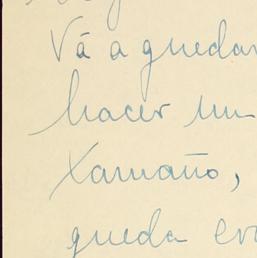 Vá a quedar
hacer un
Xamaño,
queda